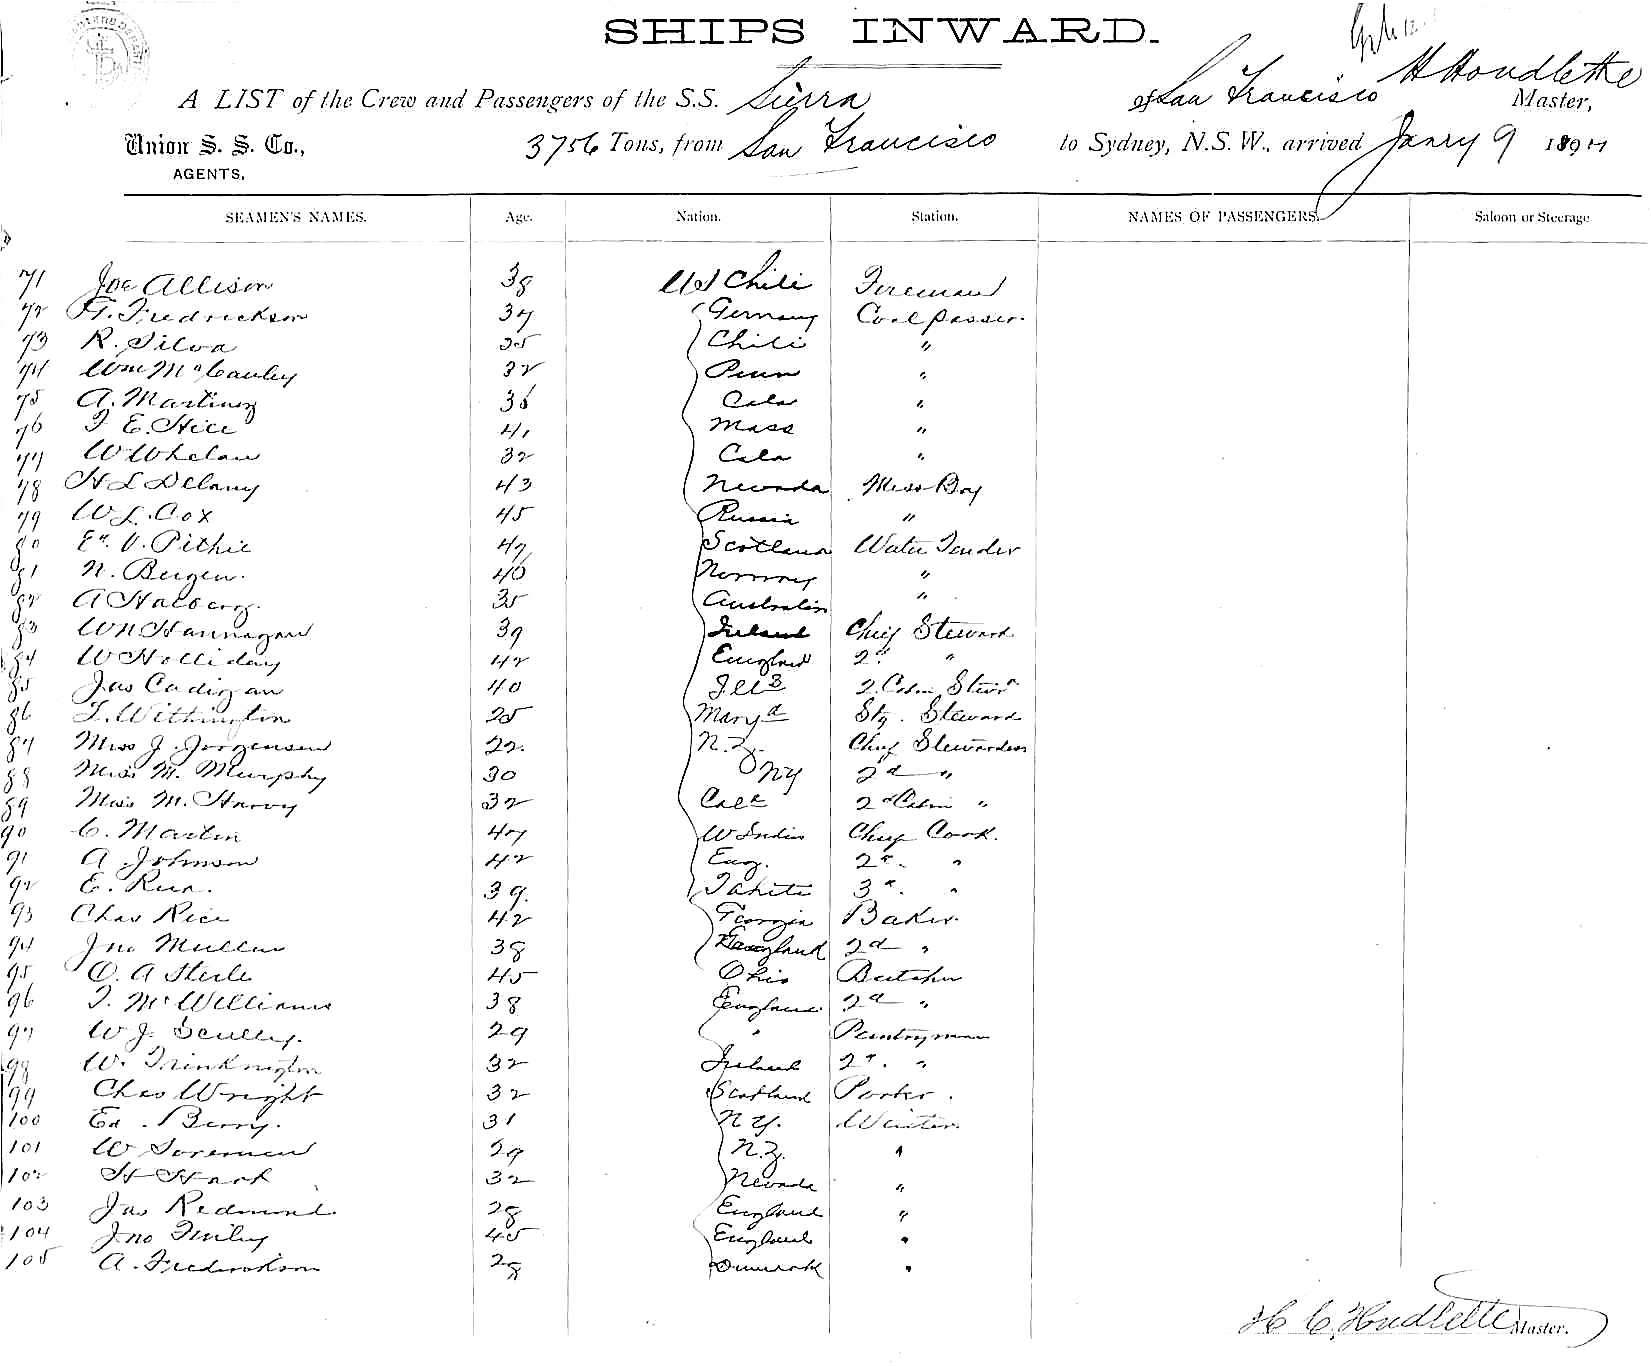 SHIPS INWARD.
A LIST of the Crew and Passengers of the S.S. Sierra of San Francisco H Houdlette Master,
Union S. S. Co., AGENTS, 3756 Tons, from San Francisco to Sydney, N.S.W., arrived Janry 9 189
SEAMEN'S NAMES. Age. Nation. Station. NAMES OF PASSENGERS. Saloon or Steerage
71 Joe Allison 38 Chili Fireman
72 Fredrickson 37 Germany Coal passer.
73 R. Silva 25 Chili "
74 Wm McCauley 32 Penn "
75 A. Martinez 36 Cala "
76 E. Hice 41 Mass "
77 W Whelan 32 Cala "
78 H L Delany 43 Nevada Mess Boy
79 W L. Cox 45 Russia "
80 V. Pithie 47 Scotland Water Tender
81 N. Bergen. 40 Norway "
82 A Halberg. 35 Australia "
83 Wm Hannagan 39 Ireland Chief Steward
84 W Holliday 42 England 2d "
85 Jas Cadigan 40 Ills 2 Cabin Stew
86 Withington 25 Maryd Stg. Steward
87 Miss J. Jorgensen 22. N.Z. Chief Stewardess
88 Miss M. Murphy 30 NY 2d "
89 Miss M. Harvy 32 Cala 2d Cabin "
90 C. Martin 47 W Indies Chief Cook.
91 A Johnson 42 Eng. 2d. "
92 E. Rua. 39. Tahiti 3d. "
93 Chas Rice 42 Georgia Baker.
94 Jno Muller 38 England 2d "
95 O. A Steele 45 Ohio Butcher
96 McWilliams 38 England 2d "
97 W J. Scully. 29 " Pantryman
98 W. Trinkington 32 Ireland 2d. "
99 Chas Wright 32 Scotland Porter.
100 Ed. Berry. 31 N Y. Waiter.
101 W Soreman 29 N.Z. "
102 H Hark 32 Nevada "
103 Jas Redmond 28 England "
104 Jno 45 England "
105 A. Fredrickson 28 Denmark "
H C Houdlette Master.